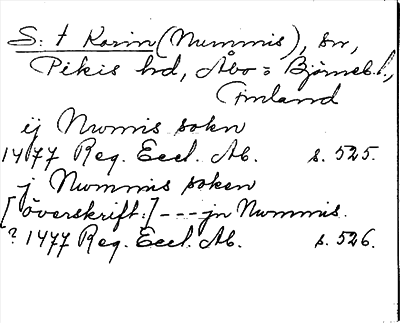 S:t Karin (Nummis), sn,
Pikis hd, Åbo = Björneb. l.,
Finland
ij Nwmis sokn
1477 Reg. Eccl. Ab. s. 525.
j Nummis soken
[överskrift:] --- jn Nummis.
? 1477 Reg. Eccl. Ab. s. 526.